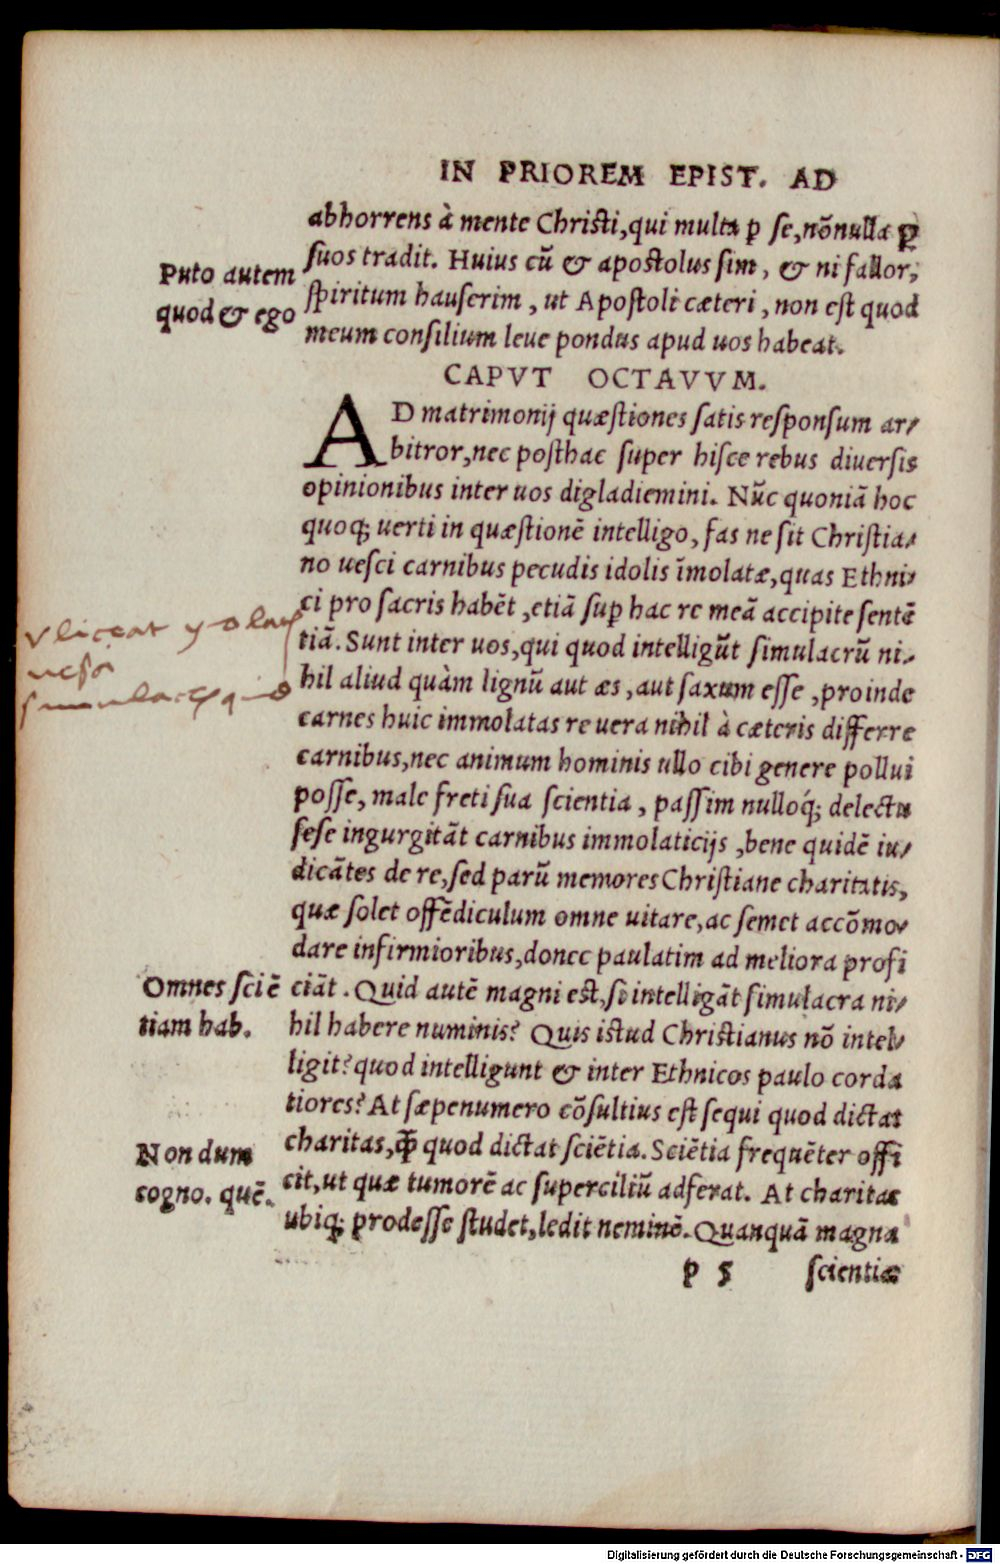 IN PRIOREM EPIST. AD
abhorrens à mente Christi, qui multa ꝑ se, nõnulla ꝑ
suos tradit. Huius cũ & apostolus sim, & ni fallor,
Puto autem
quod & ego
spiritum hauserim, ut Apostoli cæteri, non est quod
meum consilium leue pondus apud uos habeat.
CAPVT OCTAVVM.
AD matrimonij quæstiones satis responsum ar⸗
bitror, nec posthac super hisce rebus diuersis
opinionibus inter uos digladiemini. Nũc quoniã hoc
quoq; uerti in quæstionẽ intelligo, fas ne sit Christia⸗
no uesci carnibus pecudis idolis ĩmolatæ, quas Ethni⸗
ci pro sacris habẽt, etiã suꝑ hac re meã accipite sentẽ
tiã. Sunt inter uos, qui quod intelligũt simulacrũ ni⸗
hil aliud quàm lignũ aut æs, aut saxum esse, proinde
carnes huic immolatas re uera nihil à cæteris differre
carnibus, nec animum hominis ullo cibi genere pollui
posse, male freti sua scientia, passim nulloq́; delectu
sese ingurgitãt carnibus immolaticijs, bene quidẽ iu⸗
dicãtes de re, sed parũ memores Christiane charitatis,
quæ solet offẽdiculum omne uitare, ac semet accõmo⸗
dare infirmioribus, donec paulatim ad meliora profi
Omnes sciẽ
tiam hab.
ciãt. Quid autẽ magni est, si intelligãt simulacra ni⸗
hil habere numinis? Quis istud Christianus nõ intel⸗
ligit? quod intelligunt & inter Ethnicos paulo corda
tiores? At sæpenumero cõsultius est sequi quod dictat
Non dum
cogno. quẽ.
charitas, ꝙ̃ quod dictat sciẽtia. Sciẽtia frequẽter offi
cit, ut quæ tumorẽ ac superciliũ adferat. At charitas
ubiq; prodesse studet, ledit neminẽ. Quanquã magna
p 5 scientiæ
Digitalisierung gefördert durch die Deutsche Forschungsgemeinschaft - DFG